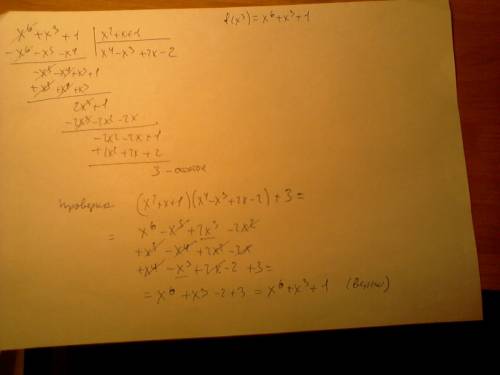 f(x³) = x⁶ + x³ + 1
x⁶ + x³ + 1 | x² + x + 1
− x⁶ − x⁵ − x⁴ | x⁴ − x³ + 2x − 2
− x⁵ − x⁴ + x³ + 1
+ x⁵ + x⁴ + x³
2x³ + 1
− 2x³ − 2x² − 2x
− 2x² − 2x + 1
+ 2x² + 2x + 2
3 −
Проверка: (x² + x + 1)(x⁴ − x³ + 2x − 2) + 3 =
= x⁶ − x⁵ + 2x³ − 2x²
+ x⁵ − x⁴ + 2x² − 2x
+ x⁴ − x³ + 2x − 2 + 3 =
= x⁶ + x³ − 2 + 3 = x⁶ + x³ + 1 (Верно)